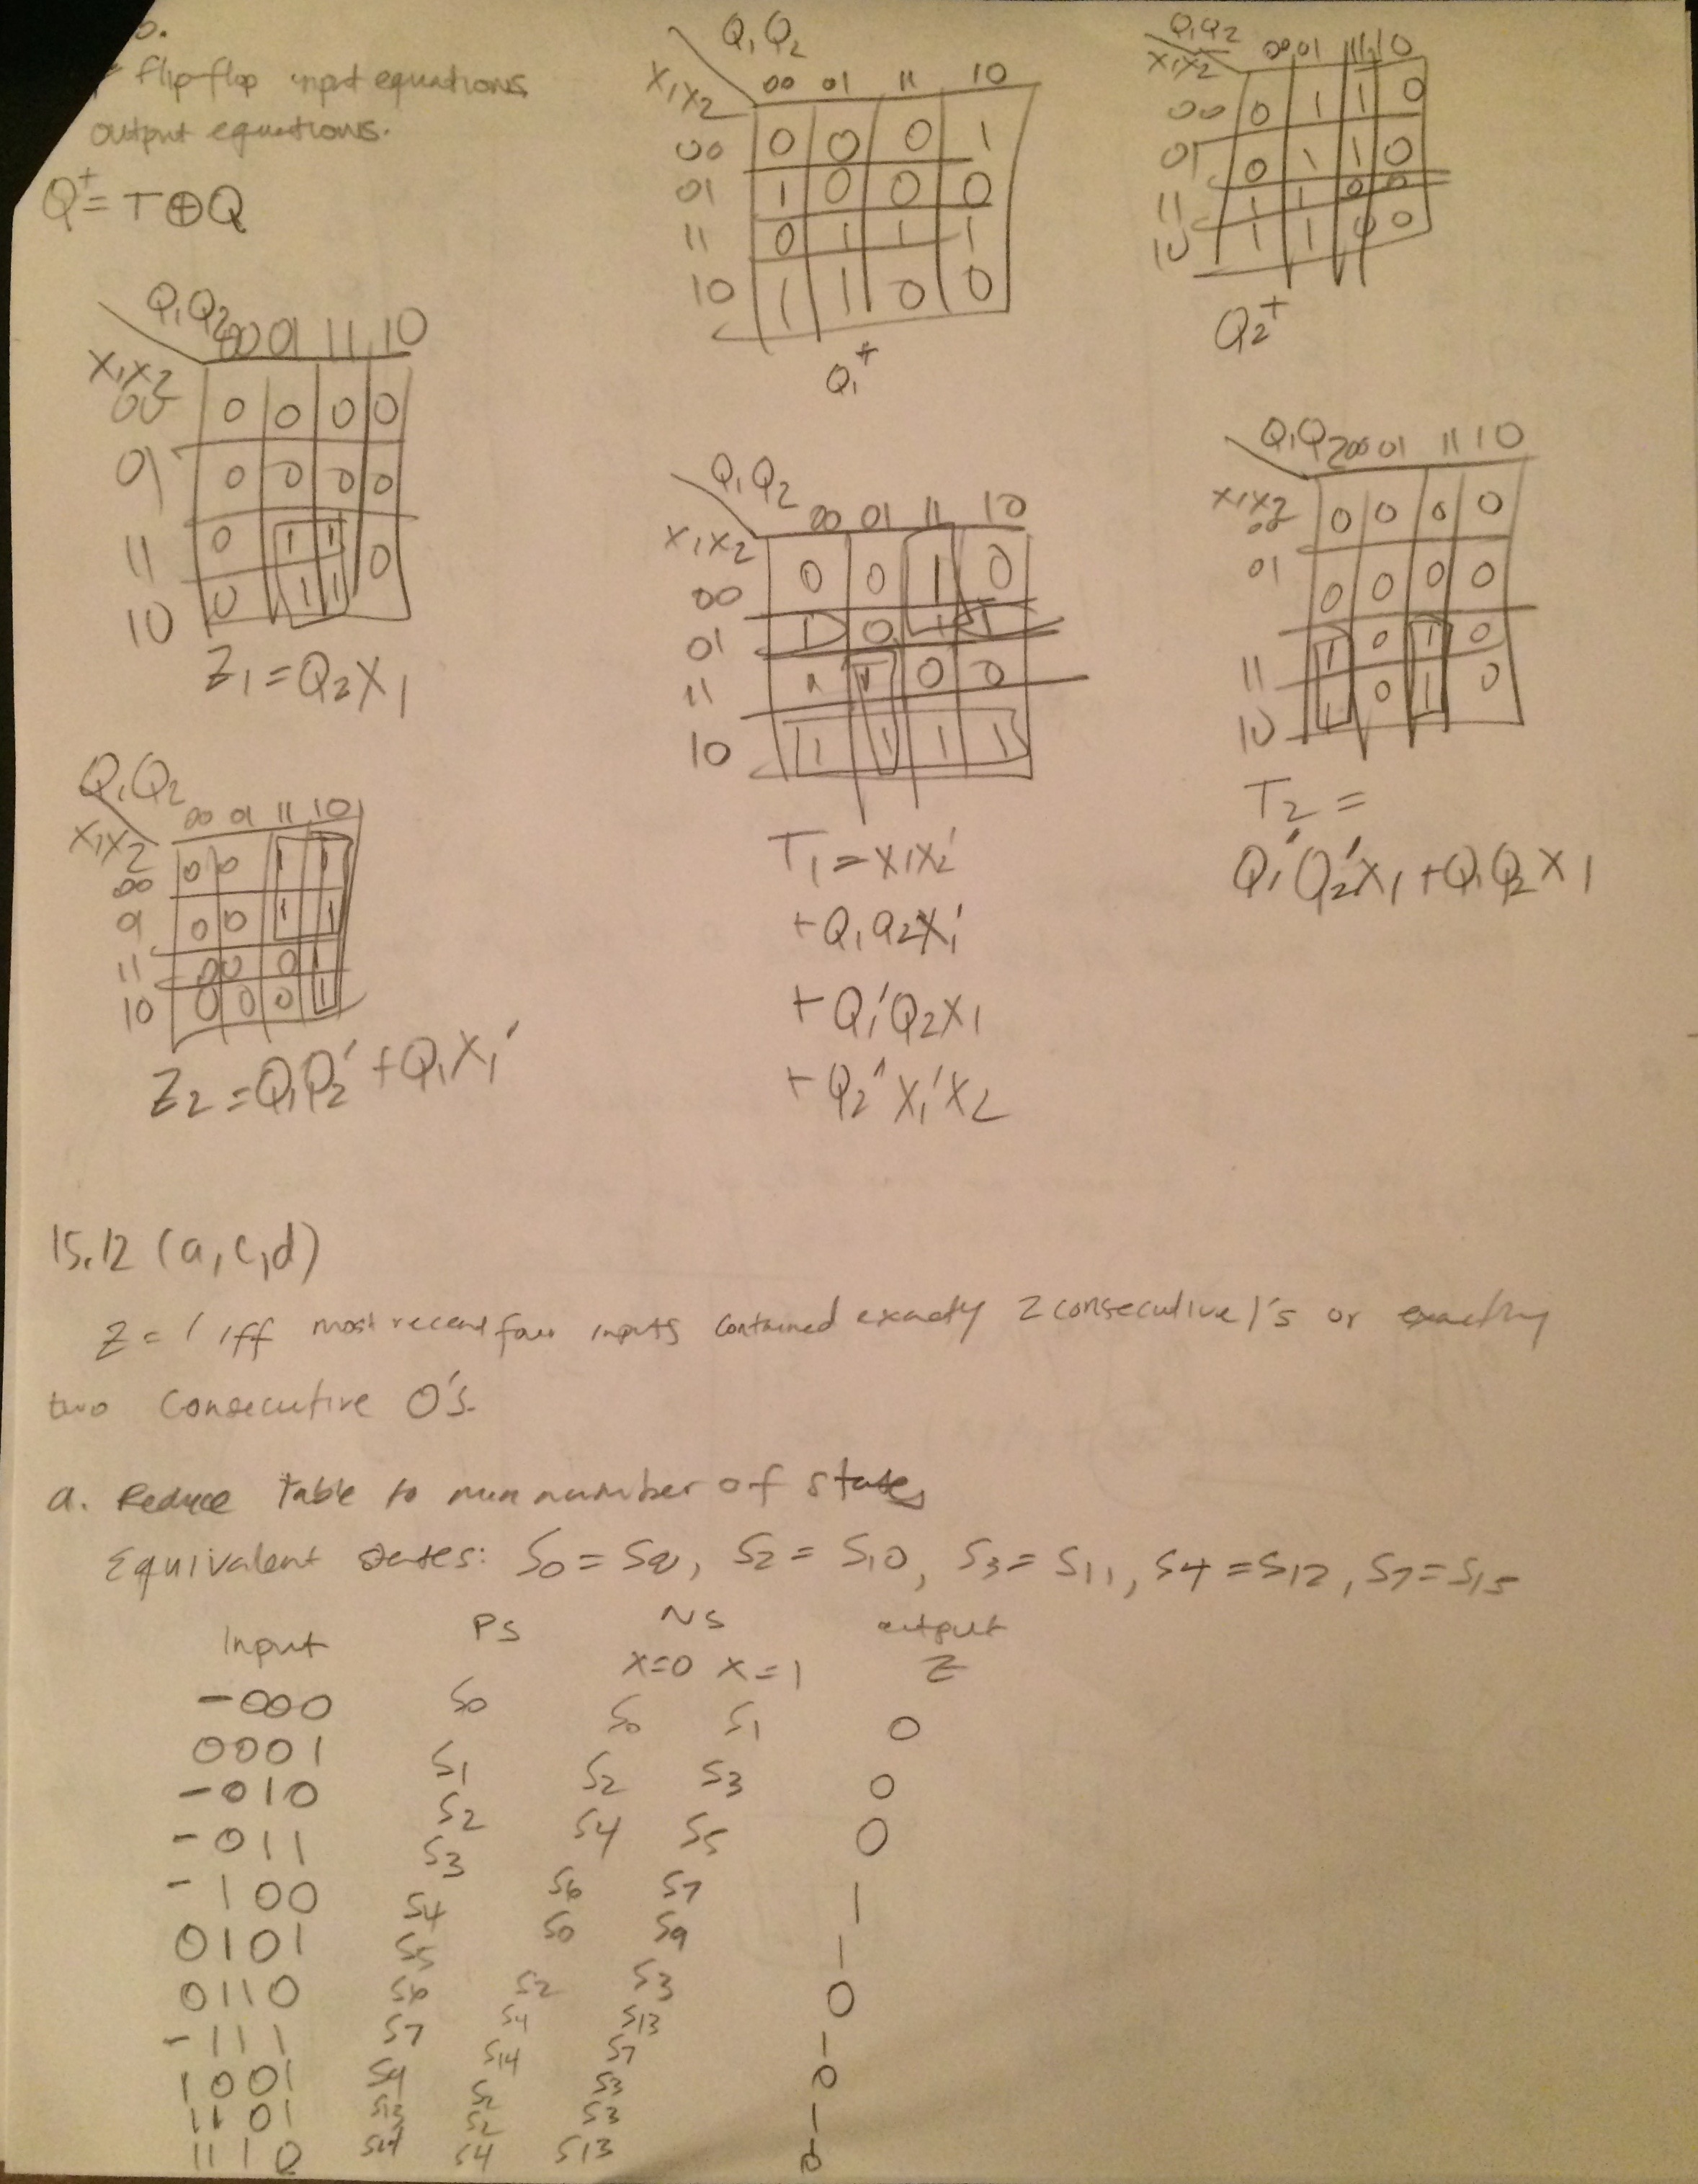 o.
flip-flop input equations
output equations.
Q⁺ = T⊕Q
Q₁Q₂
X₁X₂ 00 01 11 10
00 0 0 0 1
01 1 0 0 0
11 0 1 1 1
10 1 1 0 0
Q₁⁺
Q₁Q₂
X₁X₂ 00 01 11 10
00 0 1 1 0
01 0 1 1 0
11 1 1 0 0
10 1 1 0 0
Q₂⁺
Q₁Q₂
X₁X₂ 00 01 11 10
00 0 0 0 0
01 0 0 0 0
11 0 1 1 0
10 0 1 1
Z₁ = Q₂X₁
Q₁Q₂
X₁X₂ 00 01 11 10
00 0 0 1 0
01 1 0 1 1
11 1 0 0
10 1 1 1 1
T₁ = X₁X₂'
+ Q₁Q₂X₁'
+ Q₁'Q₂X₁
+ Q₂'X₁'X₂
Q₁Q₂
X₁X₂ 00 01 11 10
00 0 0 0 0
01 0 0 0 0
11 1 0 1 0
10 1 0 1 0
T₂ =
Q₁'Q₂'X₁ + Q₁Q₂X₁
Q₁Q₂
X₁X₂ 00 01 11 10
00 0 0 1 1
01 0 0 1 1
11 0 0 0 1
10 0 0 0 1
Z₂ = Q₁Q₂' + Q₁X₁'
15.12 (a,c,d)
Z = 1 iff most recent four inputs contained exactly 2 consecutive 1's or exactly
two consecutive 0's.
a. Reduce table to min number of states
Equivalent states: S0 = S8, S2 = S10, S3 = S11, S4 = S12, S7 = S15
Input PS NS output
X=0 X=1 Z
-000 S0 S0 S1 0
0001 S1 S2 S3 0
-010 S2 S4 S5 0
-011 S3 S6 S7 1
-100 S4 S0 S9 1
0101 S5 S2 S3 0
0110 S6 S4 S13 1
-111 S7 S14 S7 0
1001 S9 S2 S3 1
1101 S13 S2 S3 0
1110 S14 S4 S13